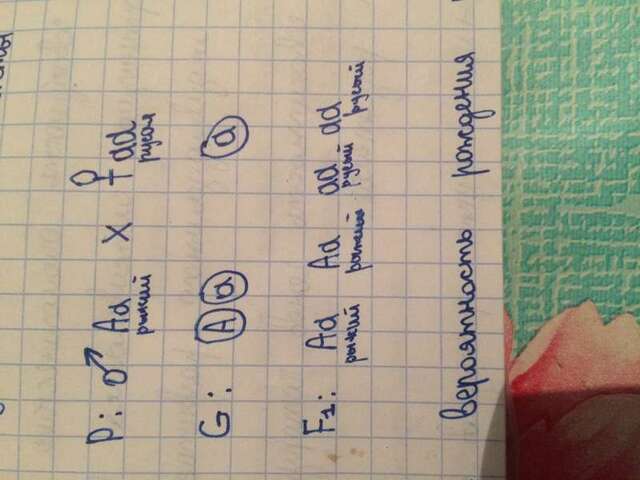 P: ♂ Aa x ♀ aa
рыжий русая
G: A a a
F1: Aa Aa aa aa
рыжий рыжий русый русый
вероятность рождения